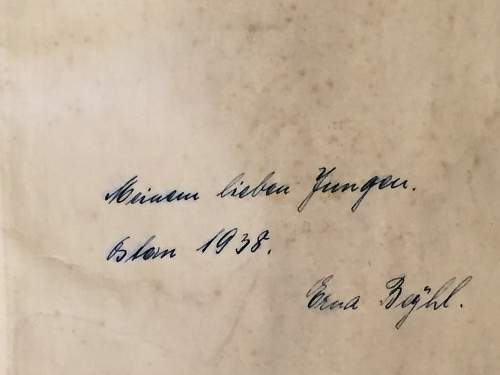 Meinem lieben Jungen.
Ostern 1938.
Erna